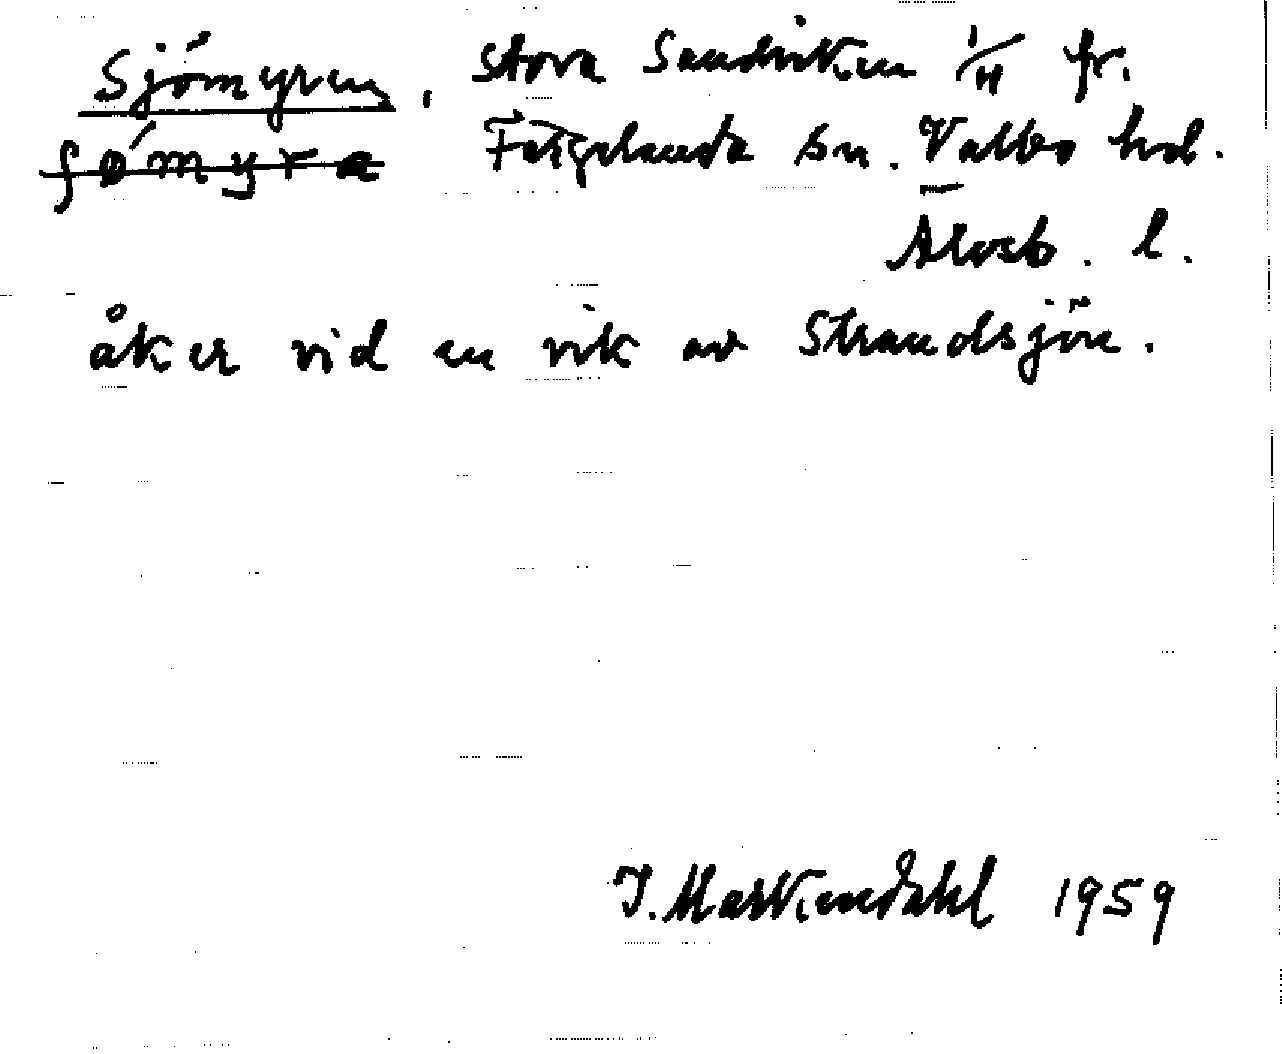 Sjömyren, Stora Sandviken 1/4 fr.
ʃǿmyra Färgelanda sn. Valbo hd.
Älvsb. l.
åker vid en vik av Strandsjön.
J. Markendahl 1959